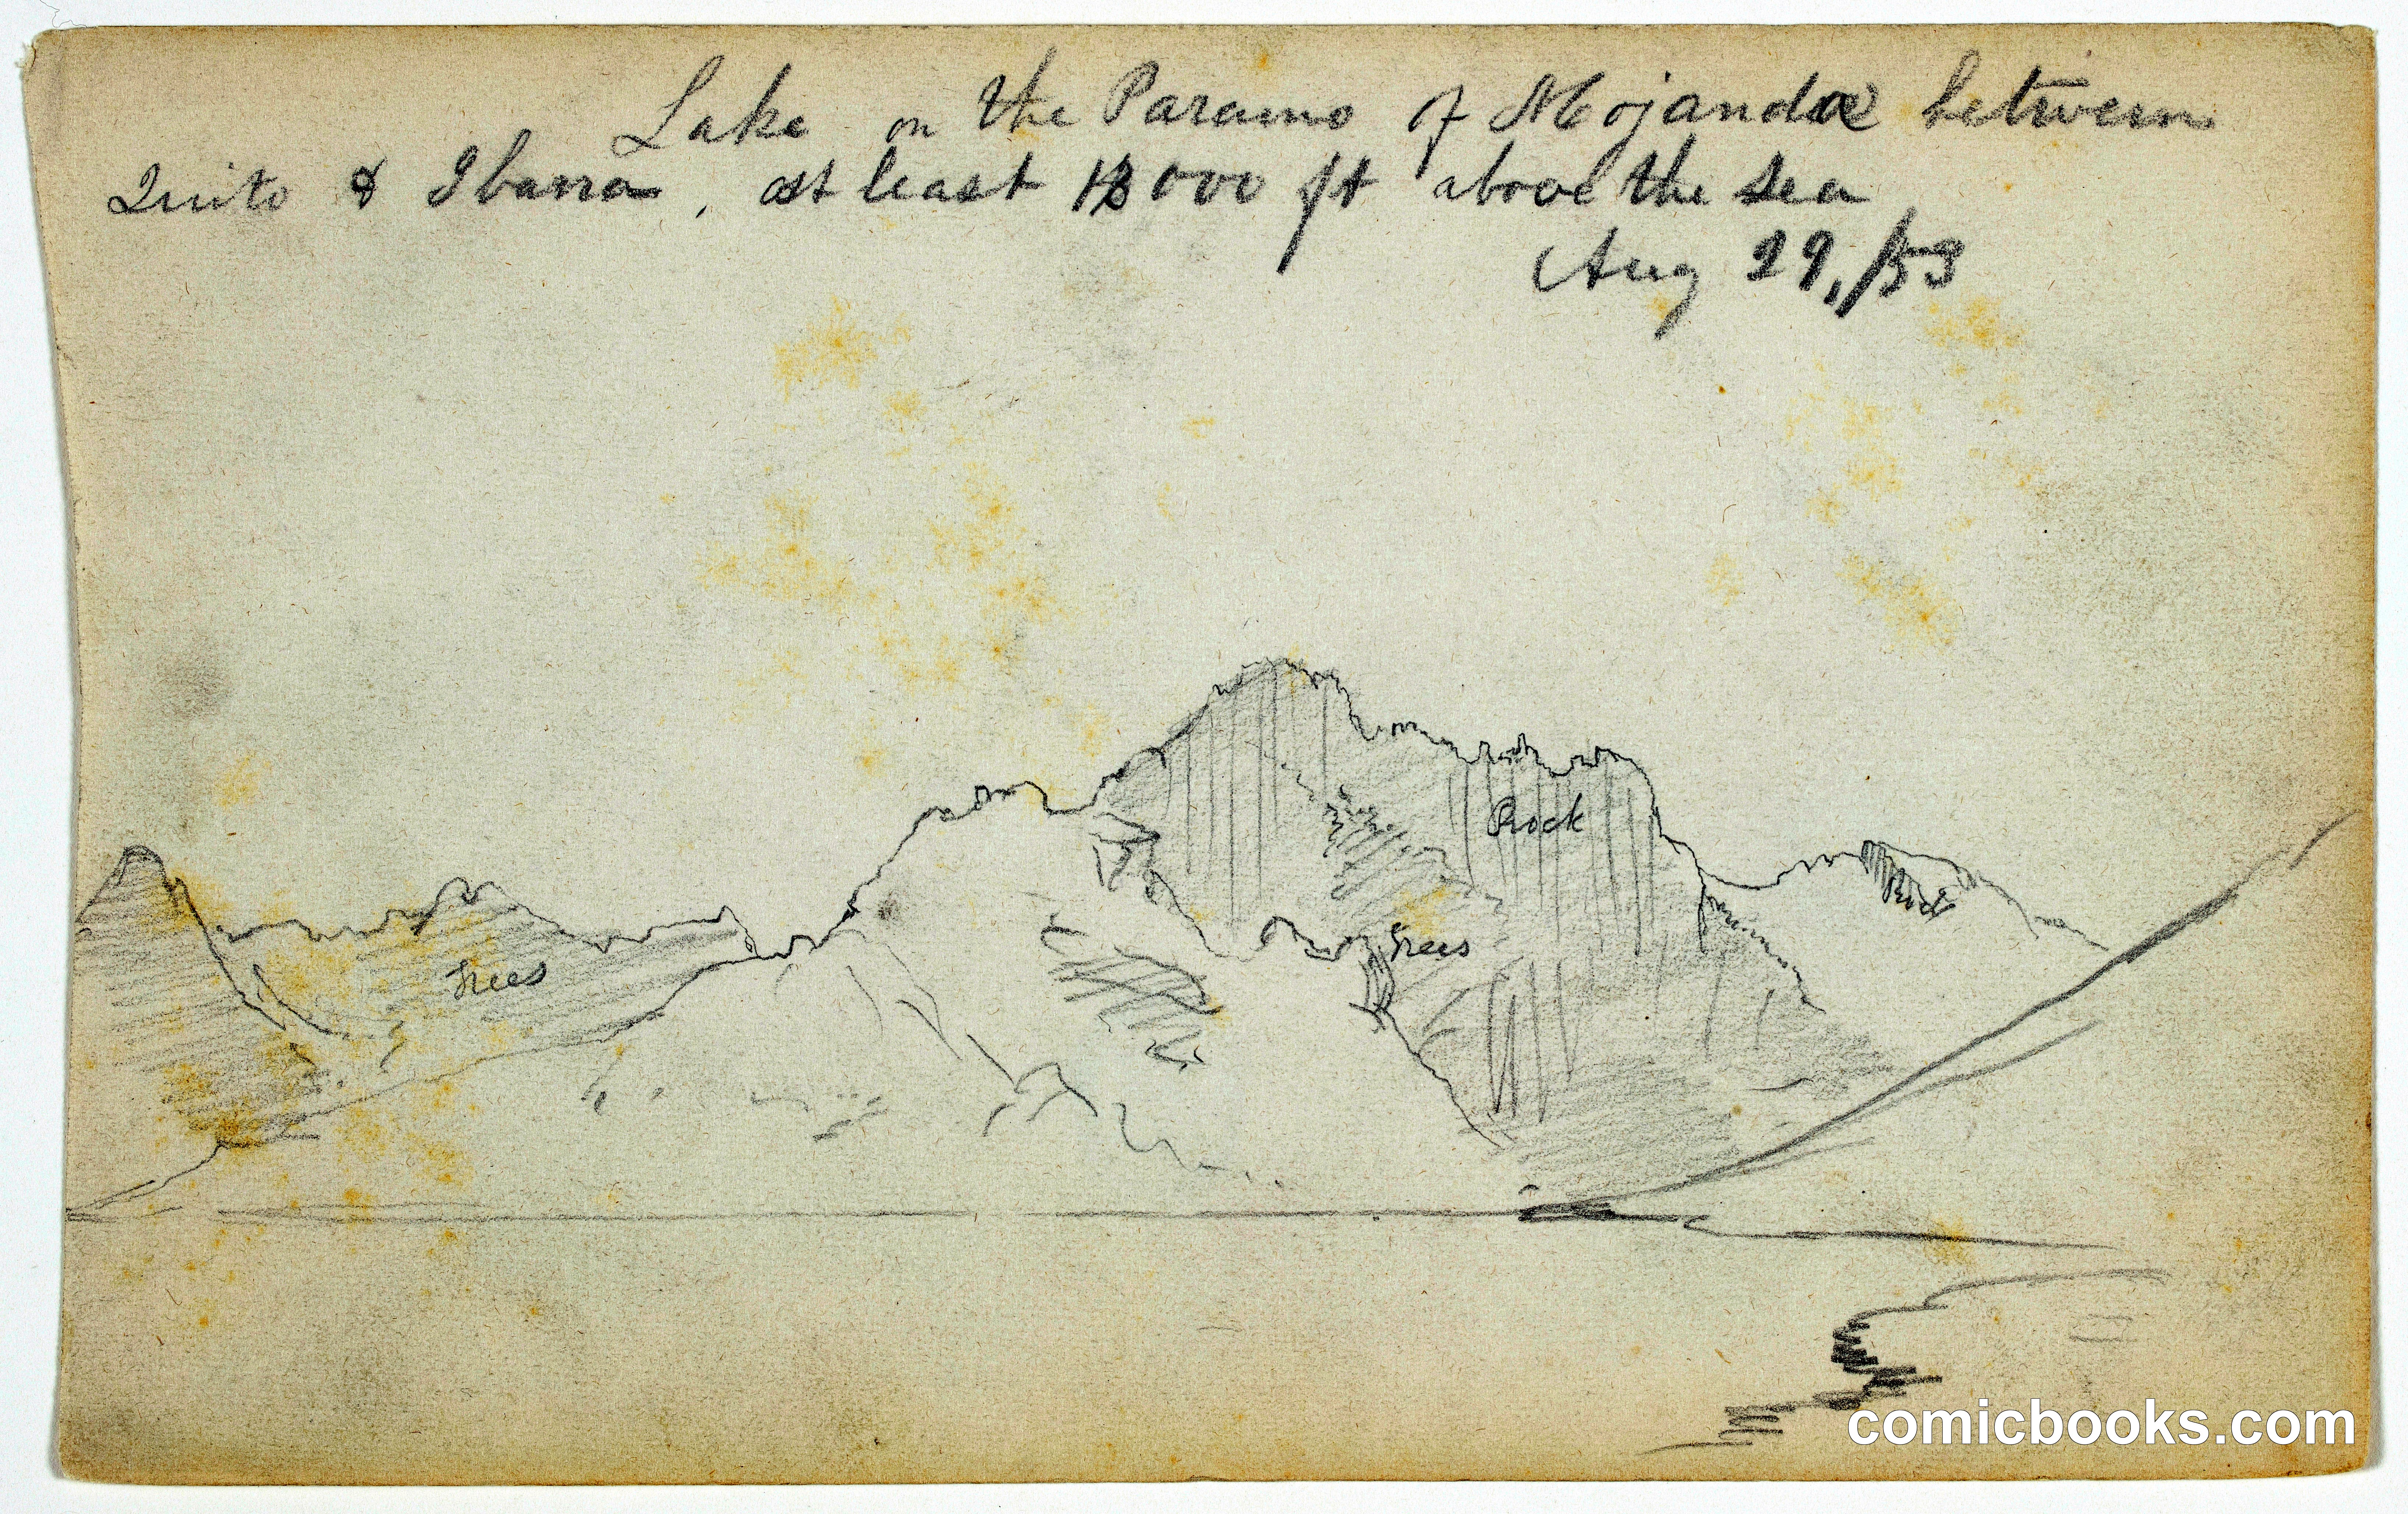 Lake on the Paramo of Mojanda between
Quito & Ibarra, at least 13000 ft above the sea
Aug 29, /53
Rock
Rock
Trees
Trees
comicbooks.com